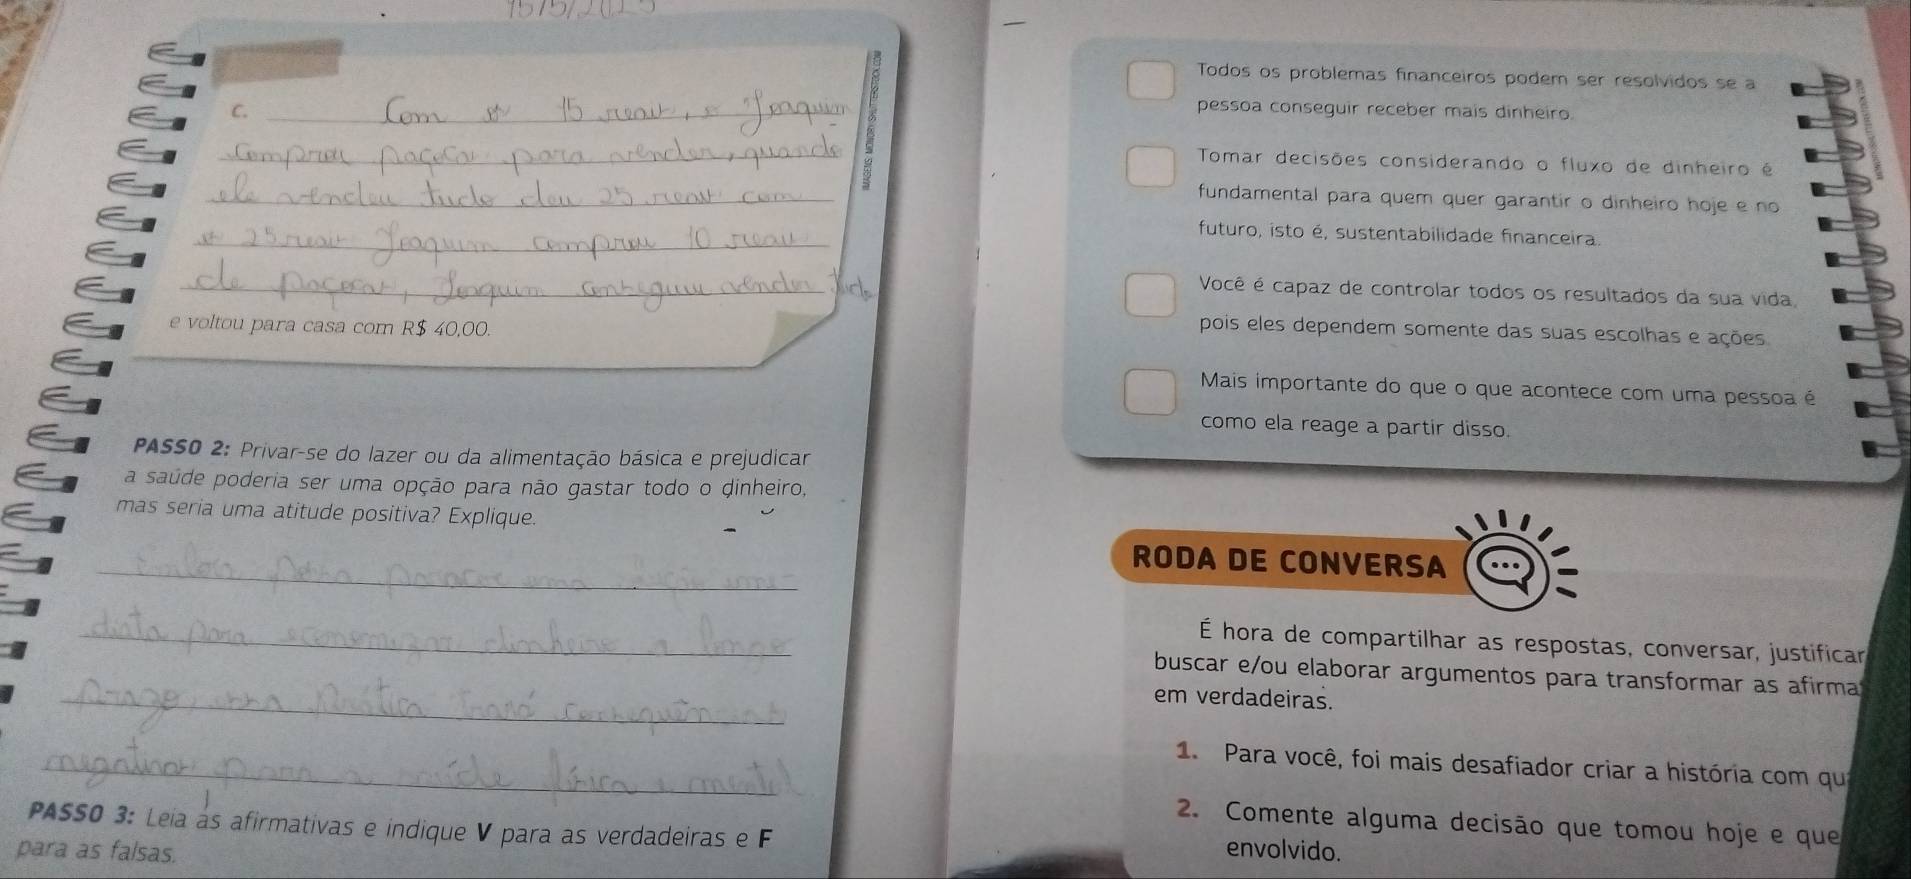 15/5/2025
C. Com os 15 reais, o Joaquim
comprou paçoca para vender, quando
ele vendeu tudo deu 25 reais com
os 25 reais Joaquim comprou 10 reais
de paçocas, Joaquim conseguiu vender tudo
e voltou para casa com R$ 40,00.
PASSO 2: Privar-se do lazer ou da alimentação básica e prejudicar
a saúde poderia ser uma opção para não gastar todo o dinheiro,
mas seria uma atitude positiva? Explique.
Embora possa parecer uma solução ime-
diata para economizar dinheiro a longo
prazo, essa prática trará consequências
negativas para a saúde física e mental
PASSO 3: Leia as afirmativas e indique V para as verdadeiras e F
para as falsas.
IMAGENS: MONORY/SHUTTERSTOCK.COM
Todos os problemas financeiros podem ser resolvidos se a
pessoa conseguir receber mais dinheiro.
Tomar decisões considerando o fluxo de dinheiro é
fundamental para quem quer garantir o dinheiro hoje e no
futuro, isto é, sustentabilidade financeira.
Você é capaz de controlar todos os resultados da sua vida,
pois eles dependem somente das suas escolhas e ações.
Mais importante do que o que acontece com uma pessoa é
como ela reage a partir disso.
RODA DE CONVERSA
É hora de compartilhar as respostas, conversar, justificar
buscar e/ou elaborar argumentos para transformar as afirma
em verdadeiras.
1. Para você, foi mais desafiador criar a história com qu
2. Comente alguma decisão que tomou hoje e que
envolvido.